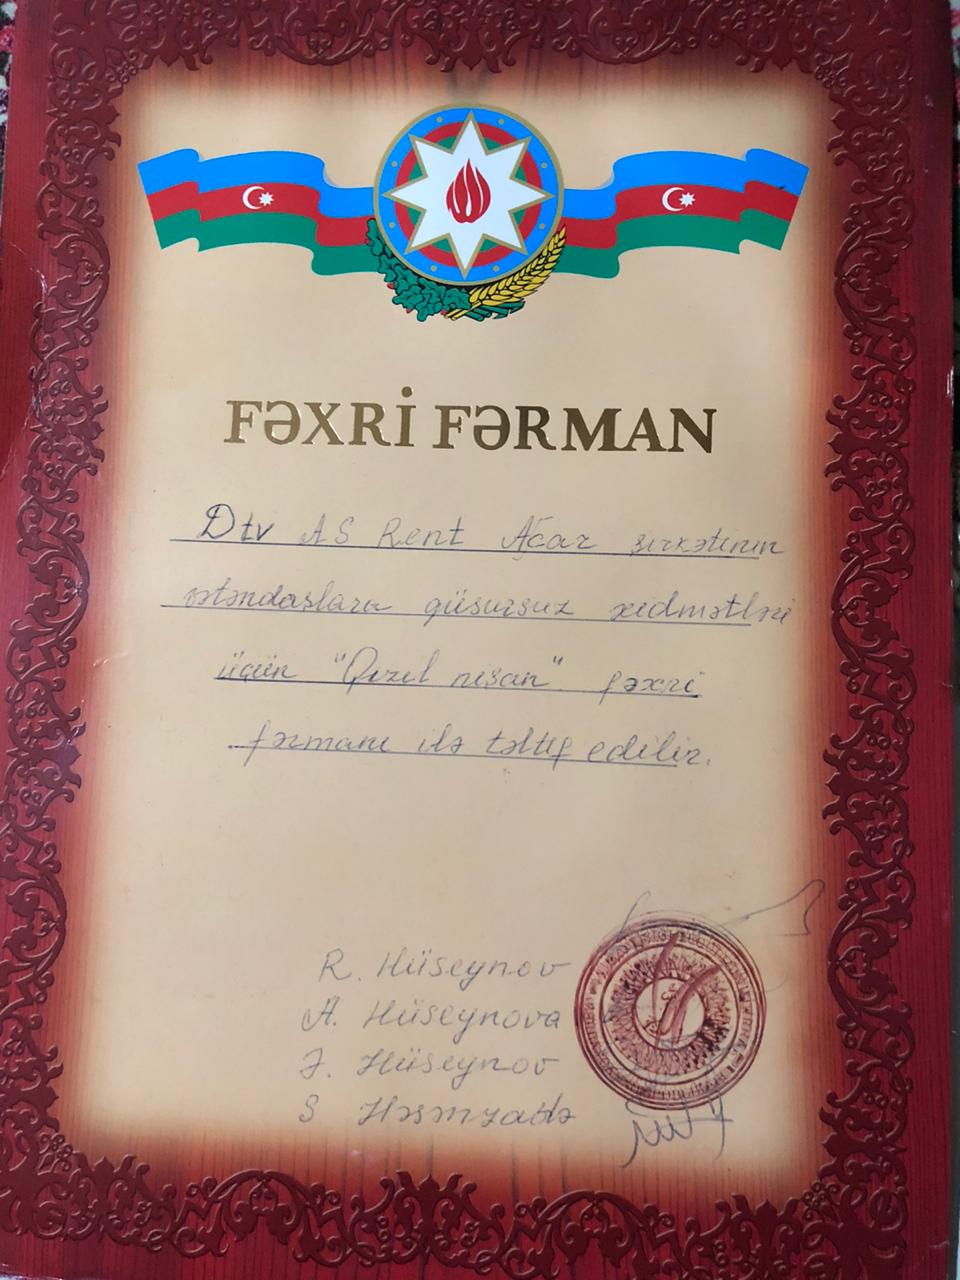 FƏXRİ FƏRMAN
Dtv AS Rent Acar şirkətinin
vətəndaşlara qüsursuz xidmətləri
üçün "Qızıl nişan" fəxri
fərmanı ilə təltif edilir.
R. Hüseynov
A. Hüseynova
J. Hüseynov
S